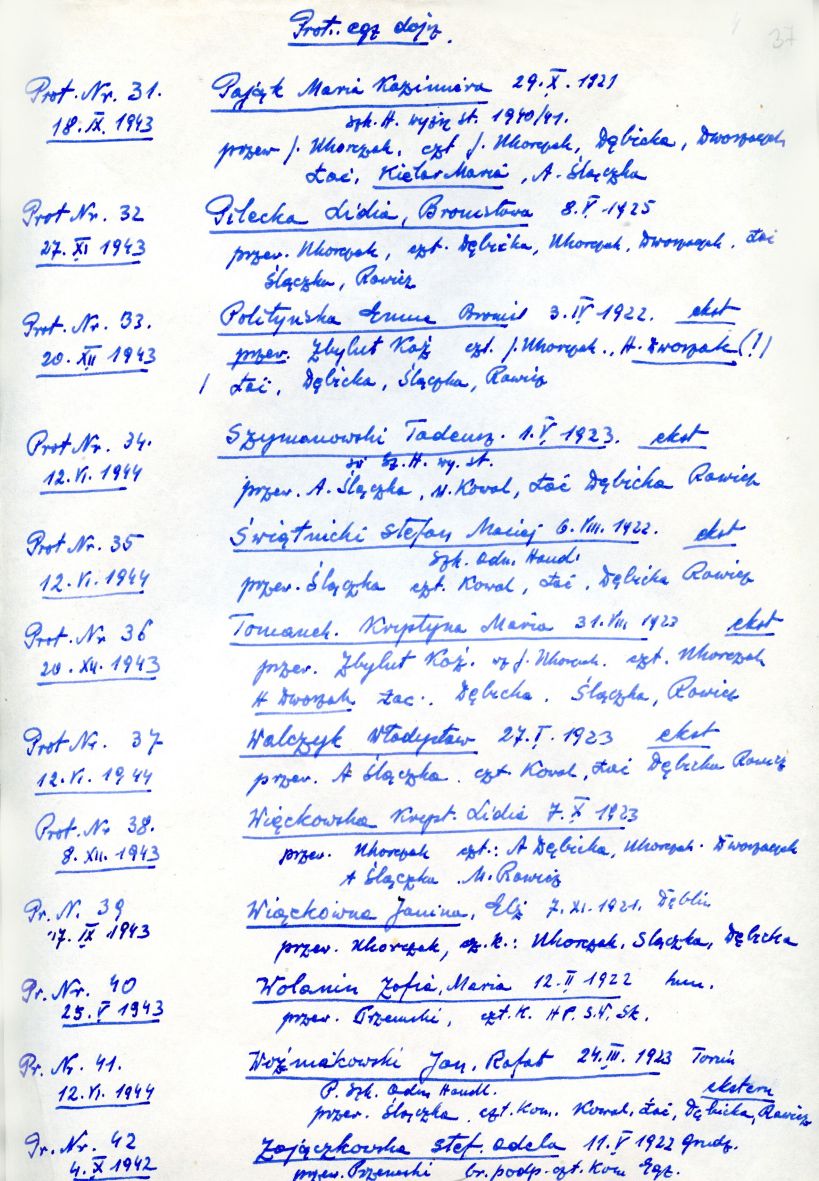 Prot. egz dojrz.
37
Prot. Nr. 31. Pająk Maria Kazimiera 29.X.1921
18.IX.1943 szk. H. wyższ. st. 1940/41.
przew J. Uhorczak, czł J. Uhorczak, Dębicka, Dworzaczek
Łoć, Kielar Maria, A. Ślączka
Prot Nr. 32 Pilecka Lidia, Bronisława 8.V.1925
27.XI 1943 przew. Uhorczak, czł. Dębicka, Uhorczak, Dworzaczek, Łoć
Ślączka, Rawicz
Prot. Nr. 33. Polityńska Emma Bronisł 3.IV 1922. ekst
20.XII 1943 przew. Zbylut Kaź czł. J. Uhorczak., H. Dworzak (!)
Łoć, Dębicka, Ślączka, Rawicz
Prot. Nr. 34. Szymanowski Tadeusz. 1.V 1923. ekst
12.VI.1944 Sz. H. wy. st.
przew. A. Ślączka, M. Kowal, Łoć Dębicka Rawicz
Prot Nr. 35 Świątnicki Stefan Maciej 6.VIII.1922. ekst
12.VI.1944 Szk. Adm. Handl
przew. Ślączka czł. Kowal, Łoć, Dębicka Rawicz
Prot. Nr 36 Tomanek. Krystyna Maria 31.VIII 1923 ekst
20.XII.1943 przew. Zbylut Kaź. J. Uhorczak. czł. Uhorczak
H Dworzak Łoć. Dębicka. Ślączka, Rawicz
Prot Nr. 37 Walczyk Władysław 27.I.1923 ekst
12.VI.1944 przew. A Ślączka. czł. Kowal, Łoć Dębicka Rawicz
Prot. Nr 38. Więckowska Kryst. Lidia 7.X 1923
8.XII.1943 przew. Uhorczak czł.: A Dębicka, Uhorczak. Dworzaczek
A Ślączka M. Rawicz
Pr. N. 39 Wiąckówna Janina, Elż 7.XI.1921. Dęblin
17.IX.1943 przew. Uhorczak, cz.k.: Uhorczak, Slączka, Dębicka
Pr. Nr. 40 Wolanin Zofia, Maria 12.II 1922 hum.
25.V 1943 przew. Przemski, czł. K. HP. S.W. Sk.
Pr. Nr. 41. Woźniakowski Jan, Rafał 24.III.1923 Toruń
12.VI.1944 P. Szk. Adm Handl. ekstern
przew. Ślączka. czł. Kom. Kowal, Łoć, Dębicka, Rawicz
Pr. Nr. 42 Zajączkowska Stef. Adela 11.V 1922 Grudz.
4.X 1942 przew. Przemski br. podp. czł. Kom Egz.